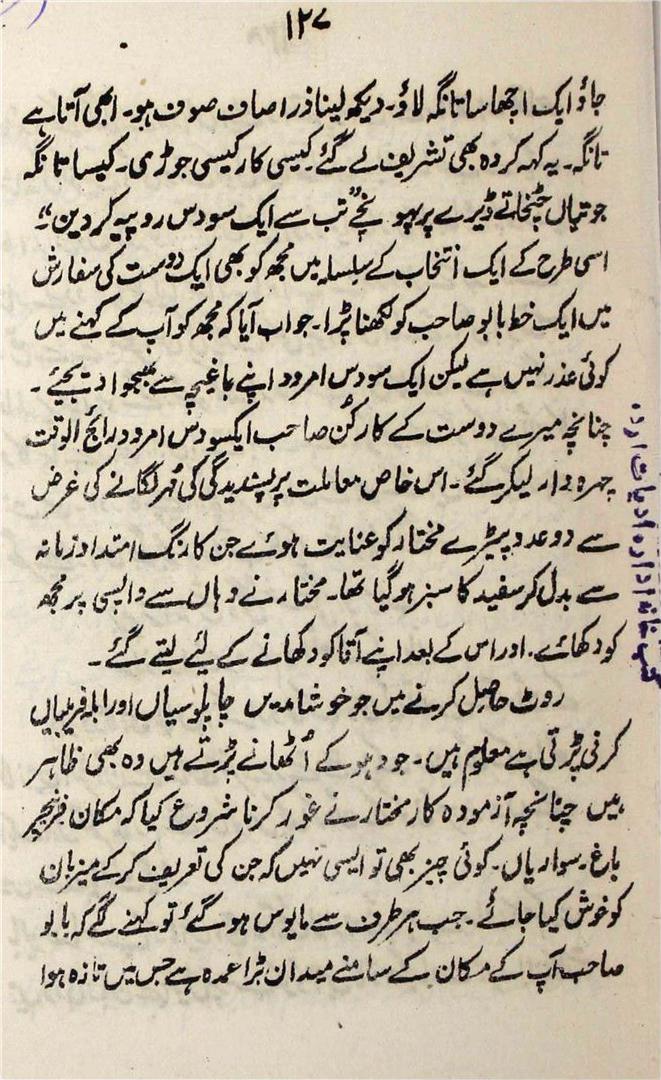 ۱۲۷
جاؤ ایک اچھا سا تانگہ لاؤ۔ دیکھ لینا ذرا صاف صوف ہو۔ ابھی آتا ہے
تانگہ۔ یہ کہہ کر وہ بھی تشریف لے گئے۔ کیسی کار کیسی جوڑی۔ کیسا تانگہ
جوتیاں چٹخاتے ڈیرے پر پہونچے ”تب سے ایک سو دس روپیہ کر دین“۔
اسی طرح کے ایک انتخاب کے سلسلہ میں مجھ کو بھی ایک دوست کی سفارش
میں ایک خط بابو صاحب کو لکھنا پڑا۔ جواب آیا کہ مجھ کو آپ کے کہنے میں
کوئی عذر نہیں ہے لیکن ایک سو دس امرود اپنے باغیچہ سے بھیجوا دیجئے۔
چنانچہ میرے دوست کے کارکُن صاحب ایکسو دس امرود رائج الوقت
چہرہ دار لیکر گئے۔ اس خاص معاملت پر پسندیدگی کی مُہر لگانے کی غرض
سے دو عدد پیڑے مختار کو عنایت ہوئے جن کا رنگ امتداد زمانہ
سے بدل کر سفید کا سبز ہو گیا تھا۔ مختار نے وہاں سے واپسی پر مجھ
کو دکھائے۔ اور اس کے بعد اپنے آقا کو دکھانے کے لئے لیتے گئے۔
ووٹ حاصل کرنے میں جو خوشامدیں چاپلوسیاں اور ابلہ فریبیاں
کرنی پڑتی ہے معلوم ہیں۔ جو دہوکے اُٹھانے پڑتے ہیں وہ بھی ظاہر
ہیں چنانچہ آزمودہ کار مختار نے غور کرنا شروع کیا کہ مکان فرنیچر
باغ۔ سواریاں۔ کوئی چیز بھی تو ایسی نہیں کہ جن کی تعریف کر کے میزبان
کو خوش کیا جائے۔ جب ہر طرف سے مایوس ہو گئے تو کہنے لگے کہ بابو
صاحب آپ کے مکان کے سامنے میدان بڑا عمدہ ہے جس میں تازہ ہوا
کتب خانہ ادارہ ادبیات اردو